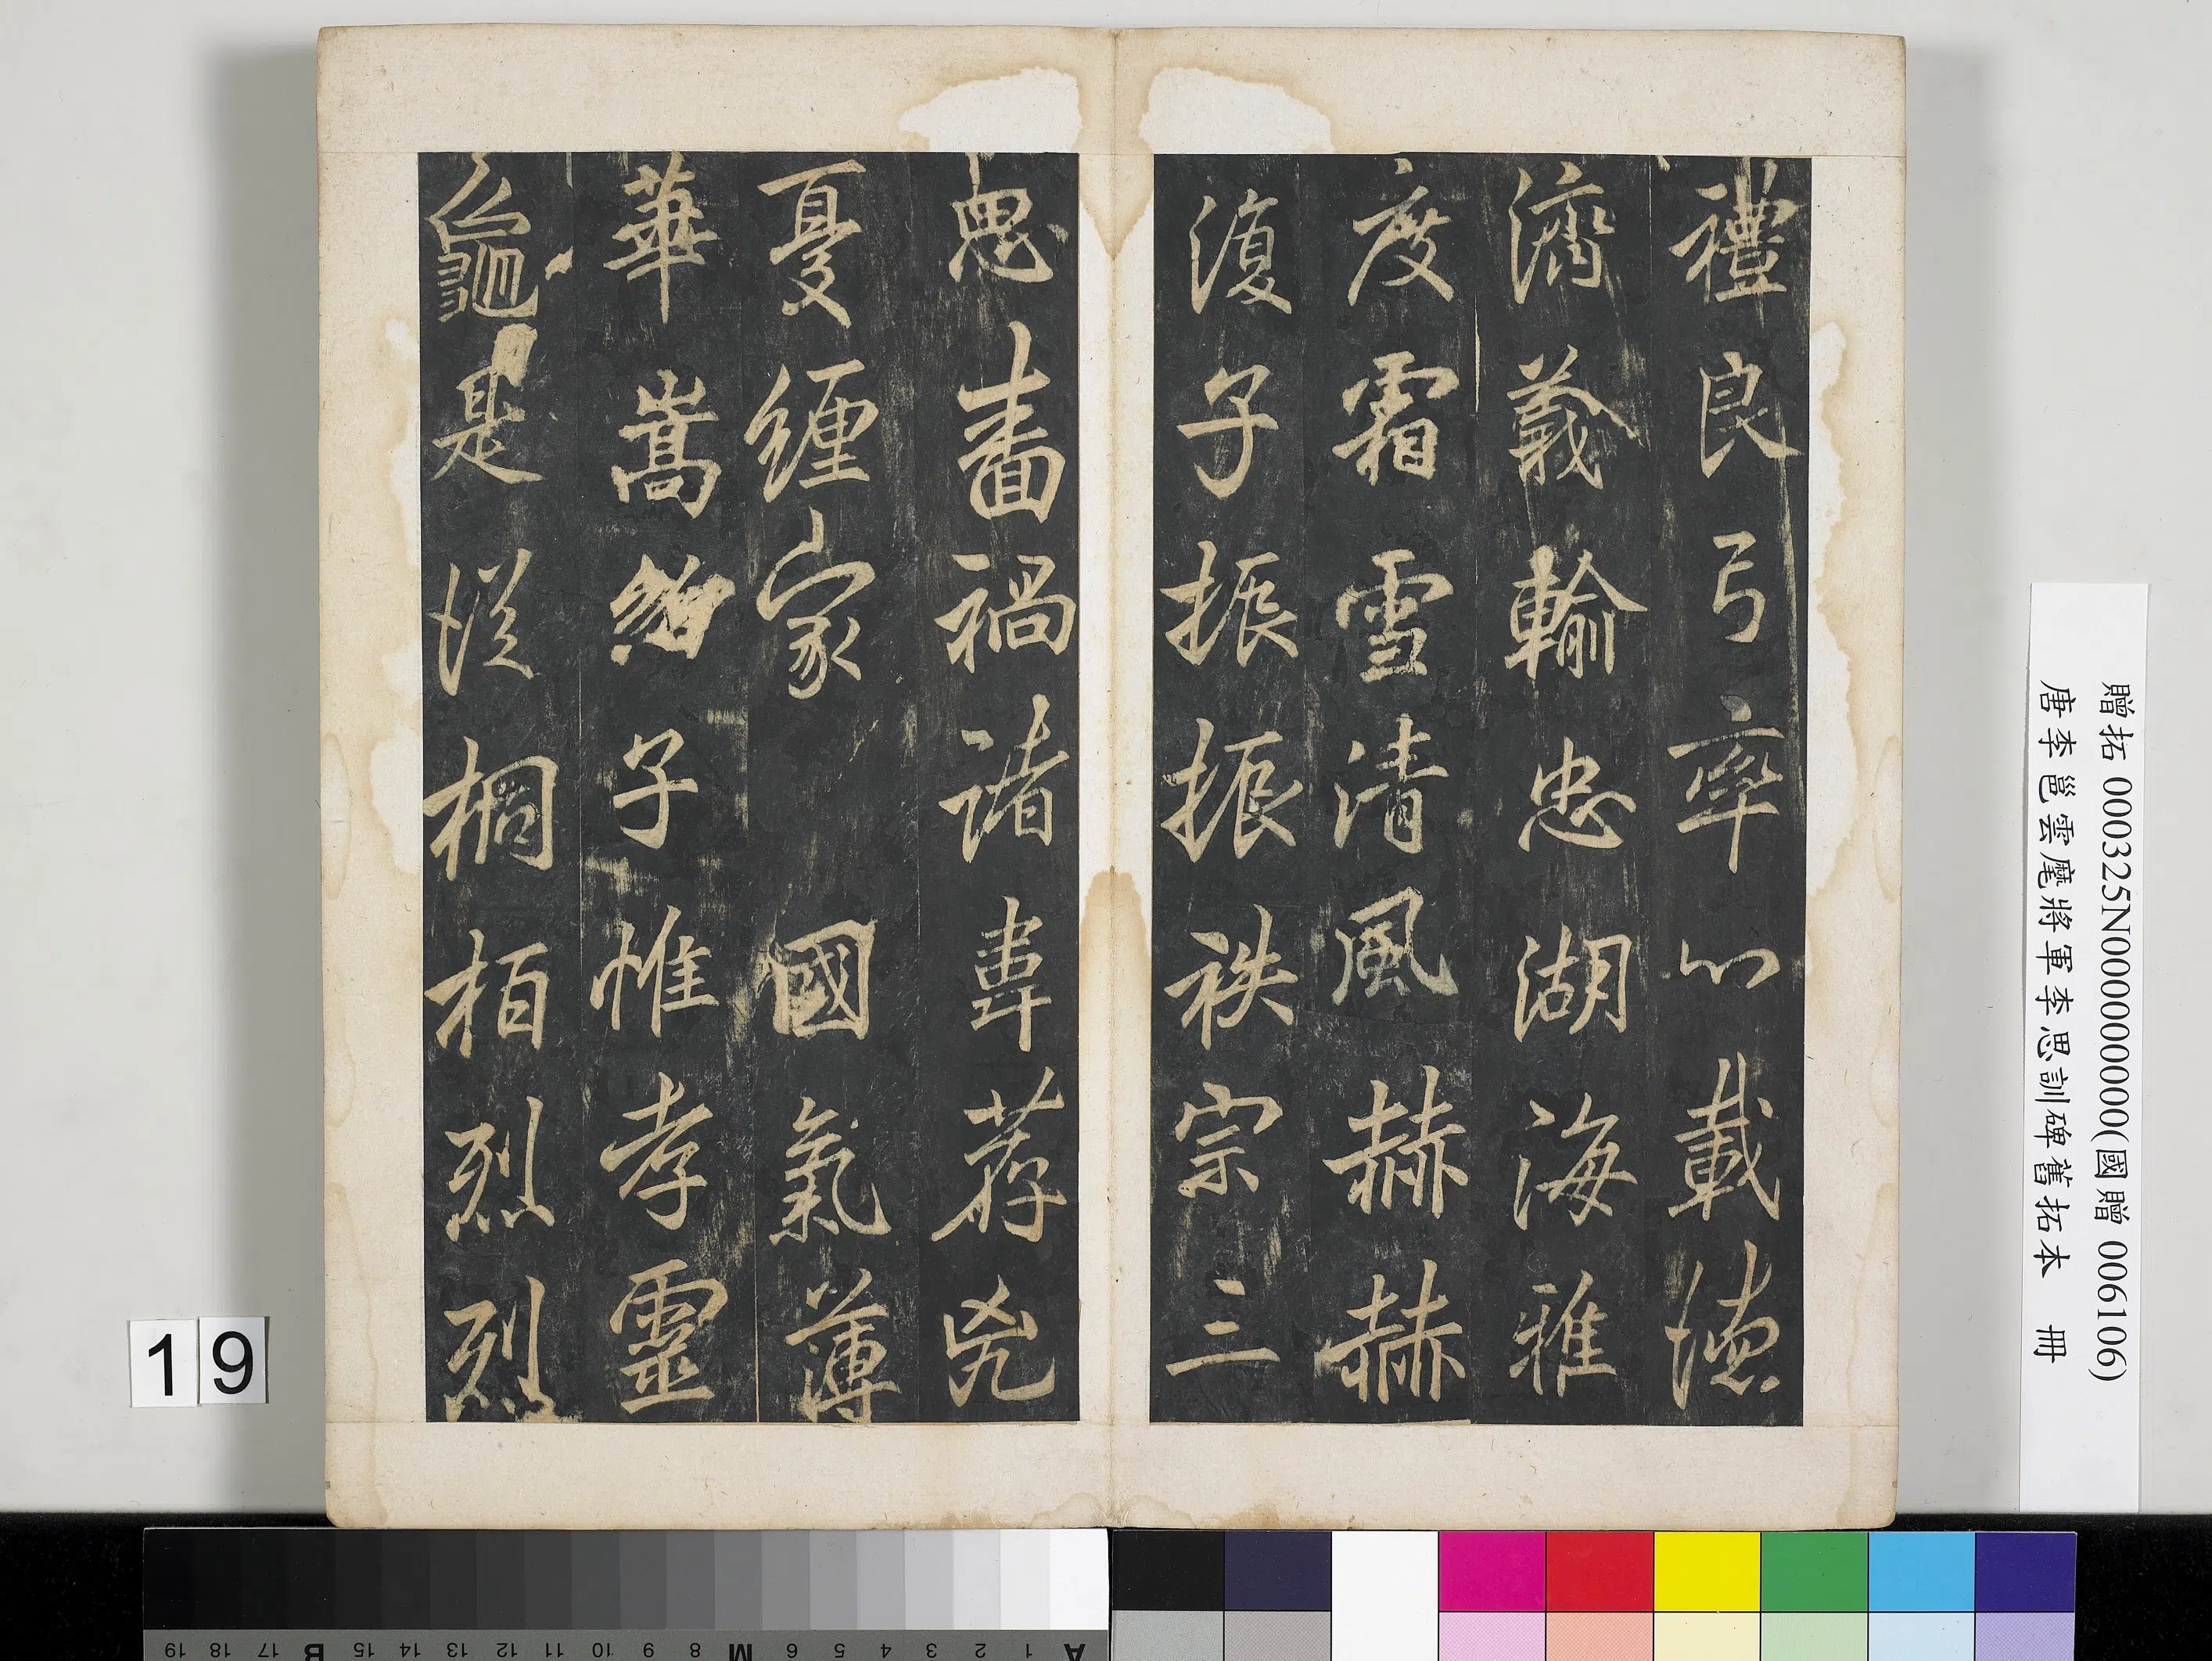 禮良弓率心載德
濟義輸忠湖海雅
度霜雪清風赫赫
復子振振秩宗三
思畜禍諸韋荐兇
憂纏家 國氣薄
華嵩紹子惟孝靈
龜是從桐栢烈烈
贈拓 000325N000000000(國贈 006106)
唐李邕雲麾將軍李思訓碑舊拓本 冊
19
A 1 2 3 4 5 6 M 8 9 10 11 12 13 14 15 B 17 18 19